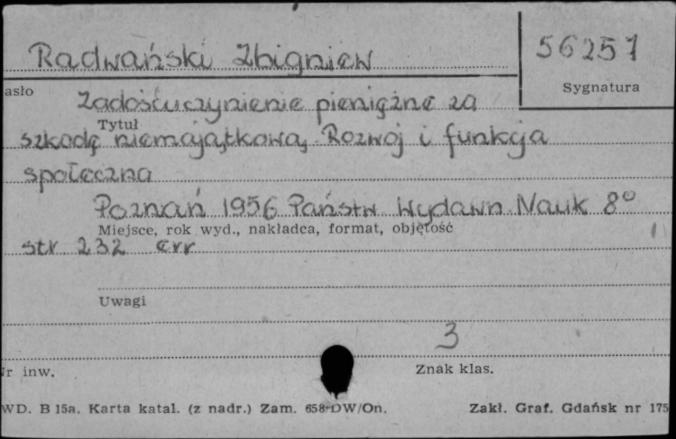 Radwański Zbigniew
56251
asło
Sygnatura
Zadośćuczynienie pieniężne za
Tytuł
szkodę niemajątkową. Rozwój i funkcja
społeczna
Poznań 1956 Państw Wydawn Nauk 8°
Miejsce, rok wyd., nakładca, format, objętość
str 232 err
Uwagi
3
r inw.
Znak klas.
WD. B 15a. Karta katal. (z nadr.) Zam. 658-DW/On.
Zakł. Graf. Gdańsk nr 175